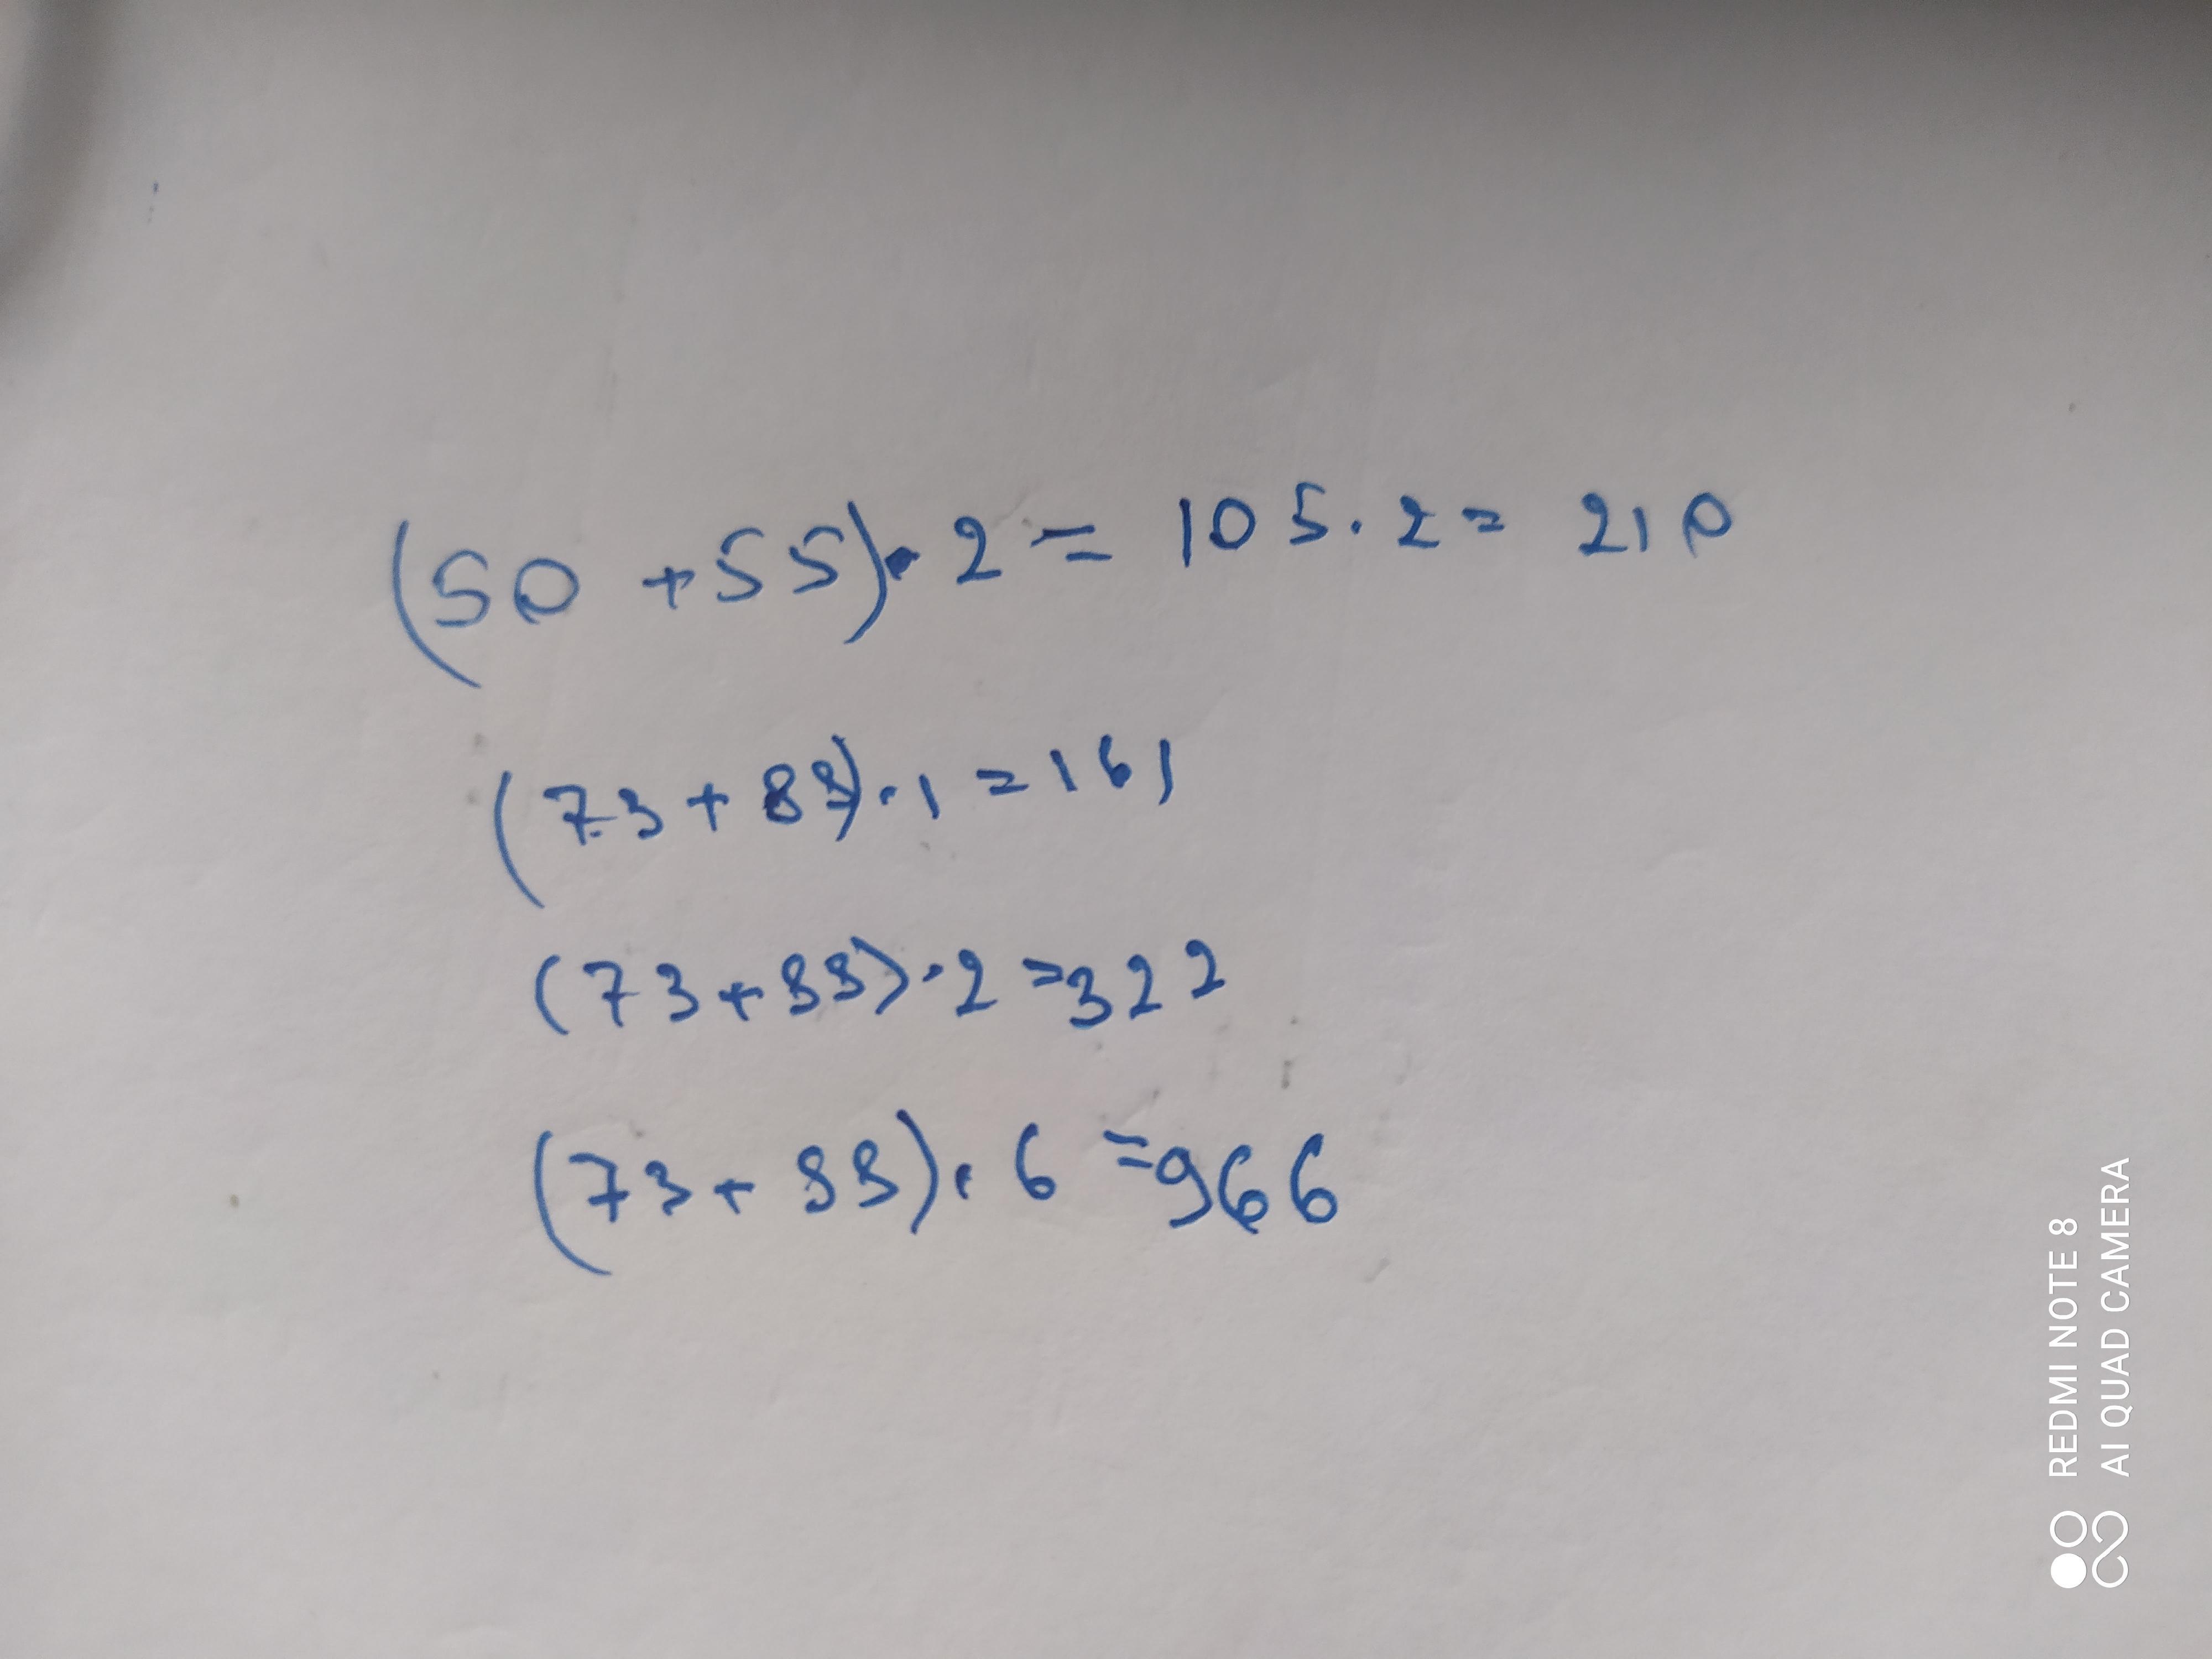 (50 + 55) · 2 = 105 · 2 = 210
(73 + 88) · 1 = 161
(73 + 88) · 2 = 322
(73 + 88) · 6 = 966
REDMI NOTE 8
AI QUAD CAMERA